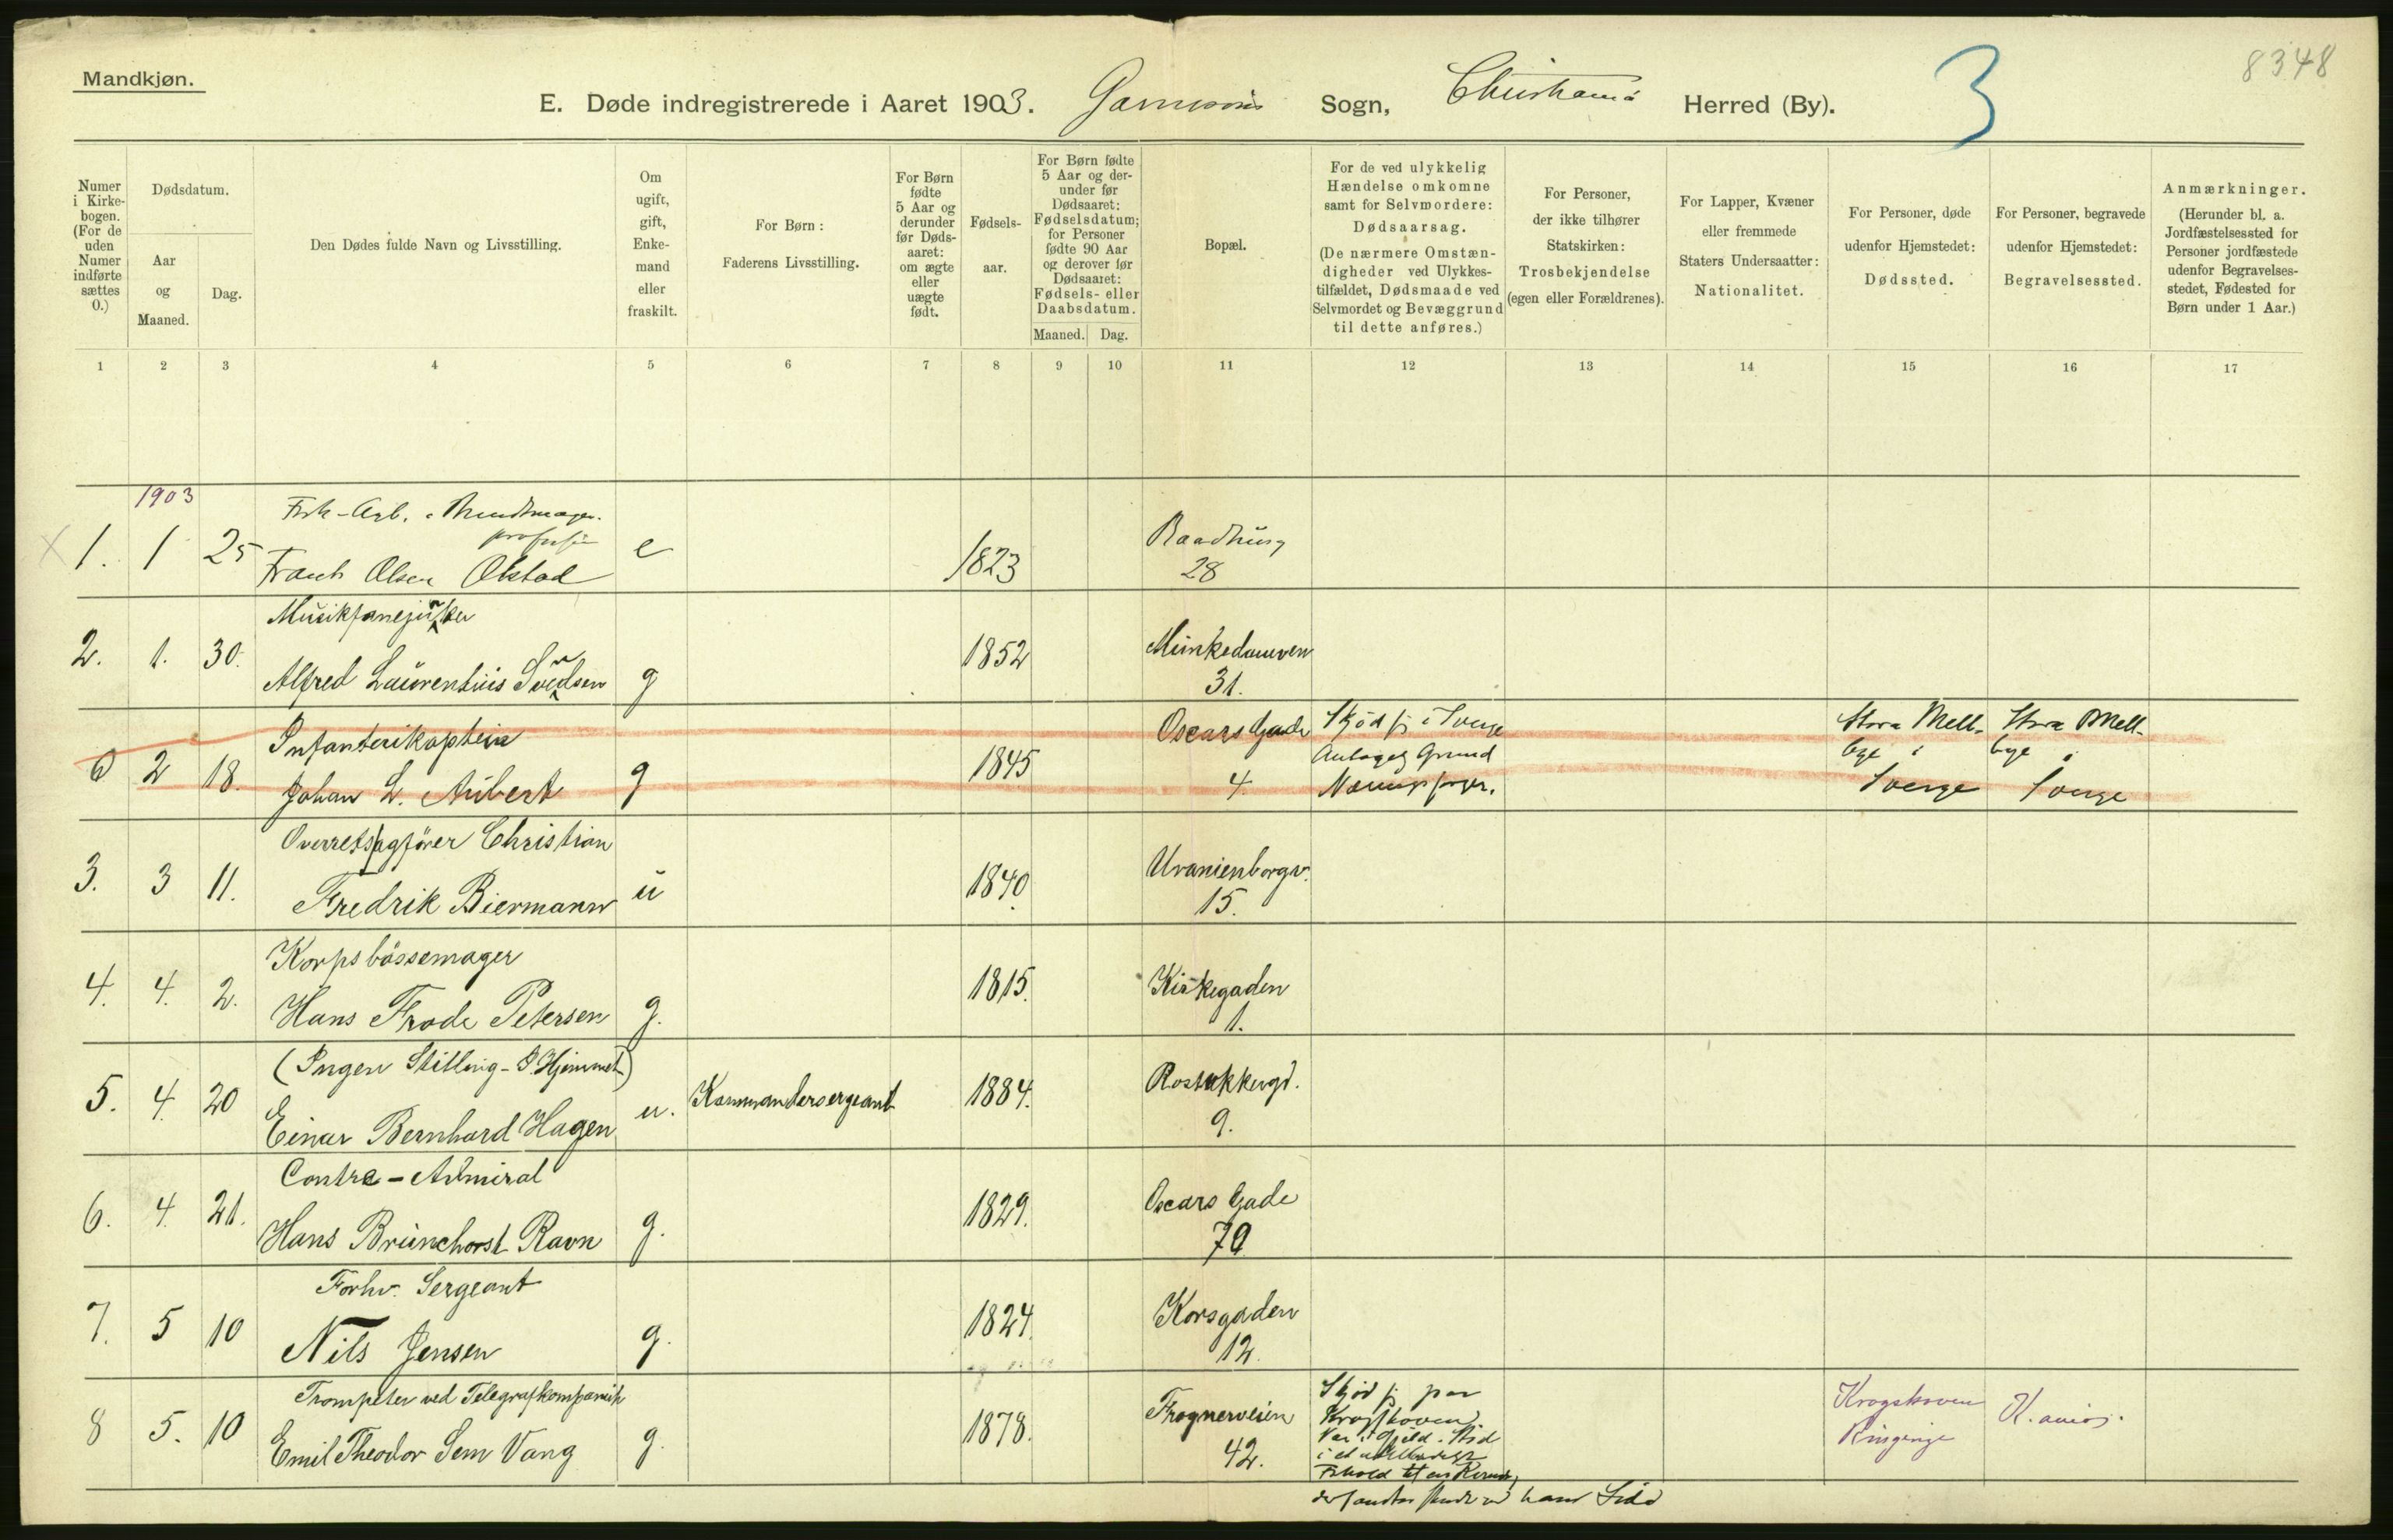 Mandkjøn.
8348
3
E. Døde indregistrerede i Aaret 1903. Garnisons Sogn, Christiania Herred (By).
Numer i Kirkebogen. (For de uden Numer indførte sættes 0.)
Dødsdatum.
Aar og Maaned.
Dag.
Den Dødes fulde Navn og Livsstilling.
Om ugift, gift, Enkemand eller fraskilt.
For Børn: Faderens Livsstilling.
For Børn fødte 5 Aar og derunder før Dødsaaret: om ægte eller uægte født.
Fødselsaar.
For Børn fødte 5 Aar og derunder før Dødsaaret: Fødselsdatum; for Personer fødte 90 Aar og derover før Dødsaaret: Fødsels- eller Daabsdatum.
Maaned. Dag.
Bopæl.
For de ved ulykkelig Hændelse omkomne samt for Selvmordere: Dødsaarsag. (De nærmere Omstændigheder ved Ulykkestilfældet, Dødsmaade ved Selvmordet og Bevæggrund til dette anføres.)
For Personer, der ikke tilhører Statskirken: Trosbekjendelse (egen eller Forældrenes).
For Lapper, Kvæner eller fremmede Staters Undersaatter: Nationalitet.
For Personer, døde udenfor Hjemstedet: Dødssted.
For Personer, begravede udenfor Hjemstedet: Begravelsessted.
Anmærkninger. (Herunder bl. a. Jordfæstelsessted for Personer jordfæstede udenfor Begravelsesstedet, Fødested for Børn under 1 Aar.)
1 2 3 4 5 6 7 8 9 10 11 12 13 14 15 16 17
1903
1. 1 25 Olsen Olstad e 1823 Raadhusg 28
Musikfanejunker
2. 1. 30. Alfred Laurentius Svendsen g 1852 Munkedamsven 31.
Infanterikaptein
0 2 18. Johan L. Aubert g 1845 Oscars Gade 4. Skjød sig i Sverge Antagelig Grund Stora Mellbye i Sverge Stora Mellbye i Sverge
Overretssagfører Christian
3. 3 11. Fredrik Biermann u 1840. Uranienborgv. 15.
Korpsbøssemager
4. 4. 2. Hans Frode Petersen g. 1815. Kirkegaden 1.
(Ingen Stilling - I Hjemmet)
5. 4. 20 Einar Bernhard Hagen u. Kommandersergeant 1884. Rostokkergd. 9.
Contra-Admiral
6. 4. 21. Hans Brunchorst Ravn g. 1829. Oscars Gade 79
Forhv. Sergeant
7. 5 10 Nils Jensen g. 1824. Korsgaden 12.
Trompeter ved Telegrafkompaniet
8 5. 10 Emil Theodor Sem Vang g. 1878. Frognerveien 42. Skjød sig paa Krogskoven. Var i Gjeld. Stod i et Forhold til en Kvinde, Krogskoven Ringerige
hans Side